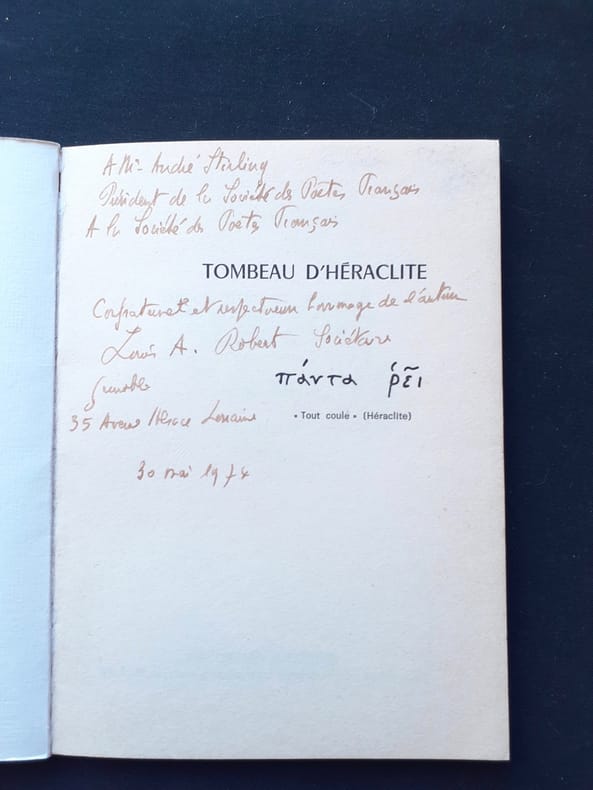 A Mr André Stirling
Président de la Société des Poètes Français
A la Société des Poètes Français
TOMBEAU D'HÉRACLITE
Confraternel et respectueux hommage de l'auteur
Louis A. Robert Sociétaire
πάντα ῥεῖ
Grenoble
« Tout coule » (Héraclite)
35 Avenue Alsace Lorraine
30 mai 1974